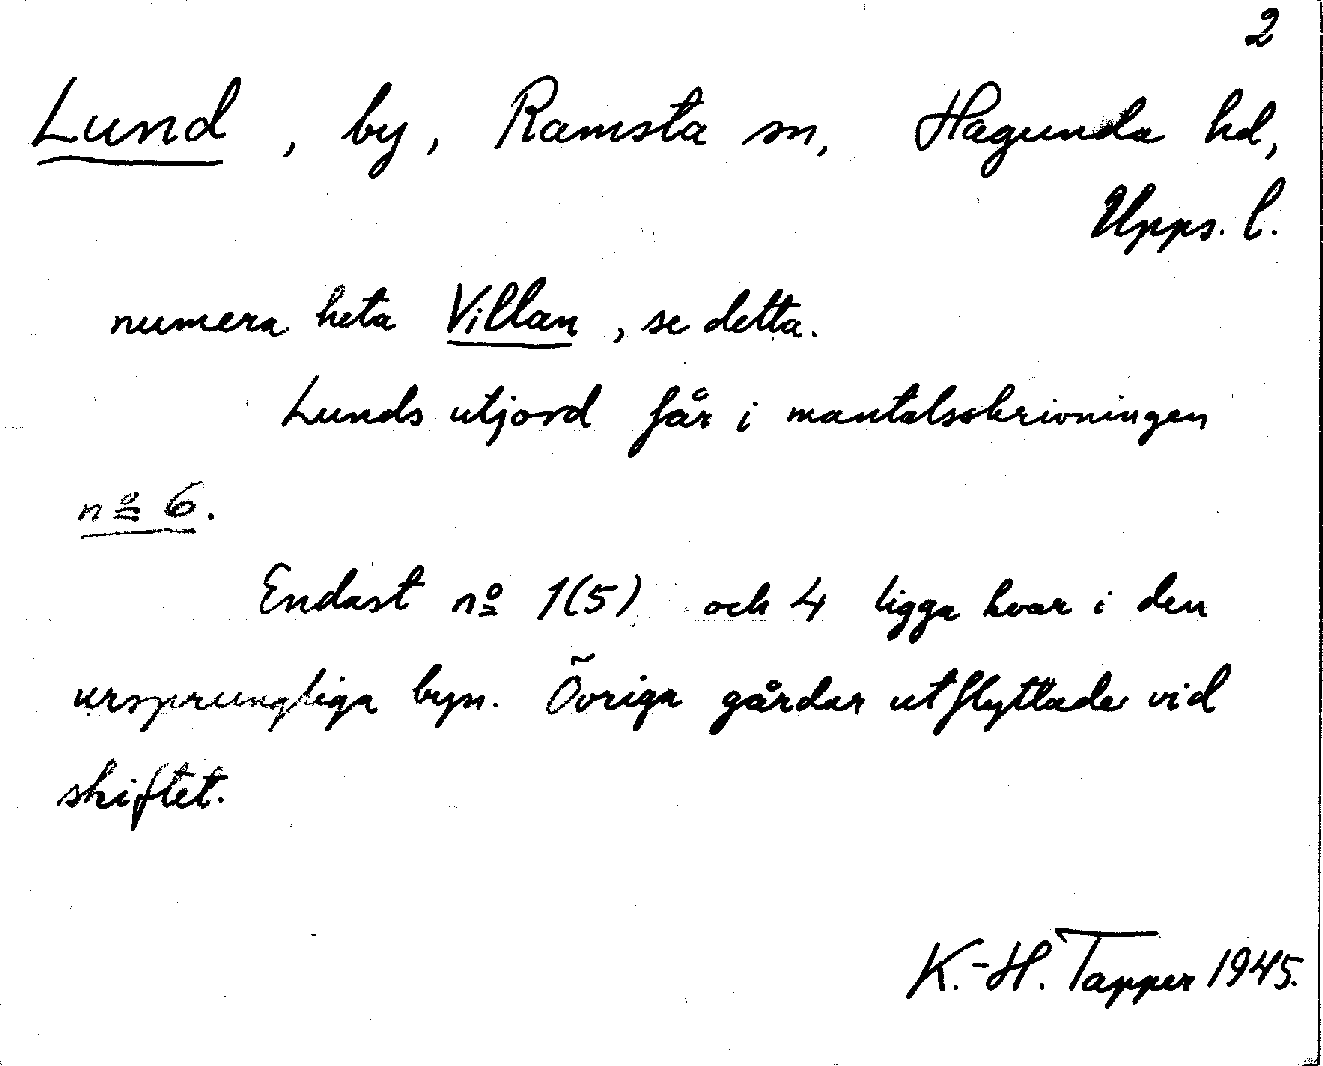 2
Lund, by, Ramsta sn, Hagunda hd,
Upps. l.
numera heta Villan, se detta.
Lunds utjord får i mantalsskrivningen
nº 6.
Endast nº 1(5) och 4 ligga kvar i den
ursprungliga byn. Övriga gårdar utflyttade vid
skiftet.
K.-H. Tapper 1945.